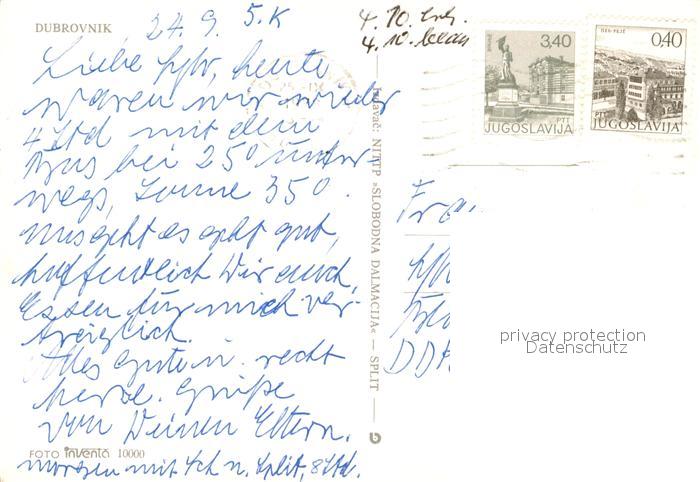 DUBROVNIK, 24. 9. 5.K
4. 10. erh.
4. 10. bean
3,40
PTT
JUGOSLAVIJA
0,40
PTT
JUGOSLAVIJA
Liebe heute
waren wir wieder
4 Std mit dem
Bus bei 25° unter-
wegs, Sonne 35°.
Uns geht es sehr gut,
hoffentlich Dir auch,
Essen für mich ver-
träglich.
Alles Gute u. recht
herzl. Grüße
von Deinen Eltern.
FOTO inventa 10000
morgen mit Sch n. Split, 8 Std.
Izdavač: NIŠP »SLOBODNA DALMACIJA« — SPLIT —
Frau
DDR
privacy protection
Datenschutz